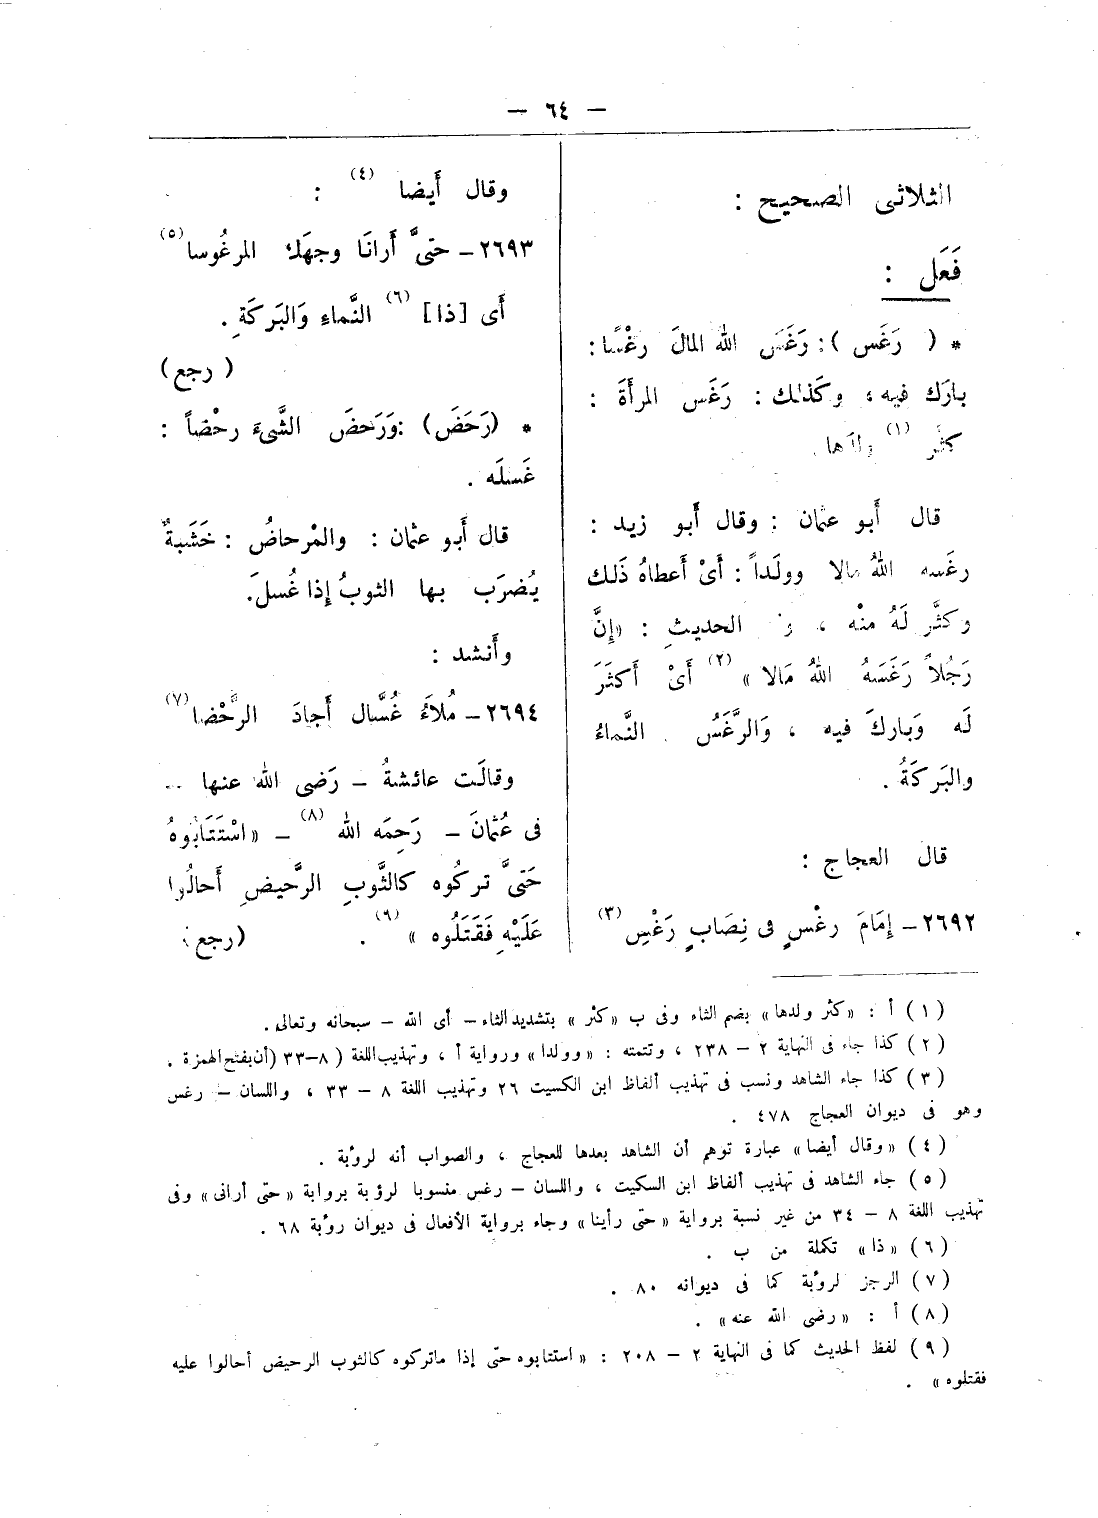 — ٦٤ —
الثلاثى الصحيح :
فَعَل :
* ( رَغَس ) : رَغَسَ اللهُ المالَ رغْسًا :
بارَك فيه ، وكَذلك : رَغَس المرأَةَ :
كثّر (١) ولدَها .
قال أَبو عثمان : وقال أَبو زيد :
رغَسه اللهُ مالا وولَداً : أَىْ أَعطاهُ ذَلك
وكثَّر لَهُ منْه ، و الحديثِ : «إِنَّ
رَجُلاً رَغَسَهُ اللهُ مَالا » (٢) أَىْ أَكثَرَ
لَه وَباركَ فيه ، وَالرَّغَسُ . النَّماءُ
والبَركَةُ .
قال العجاج :
٢٦٩٢ – إِمَامَ رغْسٍ فى نِصَابٍ رَغْسِ (٣)
وقال أَيضا (٤) :
٢٦٩٣ – حتىَّ أَرانَا وجهَك المرغُوسا (٥)
أَى [ذا] (٦) النَّماءِ وَالبَركَةِ .
( رجع )
* (رَحَضَ) : وَرَحضَ الشَّىءَ رحْضاً :
غَسلَه .
قال أَبو عثمان : والمْرحاضُ : خَشَبةٌ
يُضرَب بها الثوبُ إِذا غُسلَ.
وأَنشد :
٢٦٩٤ – مُلاَءُ غُسَّال أَجادَ الرَّحْضا (٧)
وقالَت عائشةُ – رَضى الله عنها –
فى عُثمْانَ – رَحِمَه الله (٨) – « اسْتَتَابُوهُ
حَتىَّ تركُوه كالثَّوبِ الرَّحيضِ أَحالُوا
عَلَيْهِ فَقَتَلُوه » (٩) . (رجع)
(١) أ : «كثر ولدها» بضم الثاء وفى ب «كثر» بتشديد الثاء – أى الله – سبحانه وتعالى .
(٢) كذا جاء فى النهاية ٢ – ٢٣٨ ، وتتمته : «وولدا» ورواية أ ، وتهذيب اللغة ( ٨–٣٣ (أن بفتح الهمزة .
(٣) كذا جاء الشاهد ونسب فى تهذيب ألفاظ ابن الكسيت ٢٦ وتهذيب اللغة ٨ – ٣٣ ، واللسان – رغس
وهو فى ديوان العجاج ٤٧٨ .
(٤) «وقال أيضا» عبارة توهم أن الشاهد بعدها للعجاج ، والصواب أنه لرؤبة .
(٥) جاء الشاهد فى تهذيب ألفاظ ابن السكيت ، واللسان – رغس منسوبا لرؤبة برواية «حتى أرانى» وفى
تهذيب اللغة ٨ – ٣٤ من غير نسبة برواية «حتى رأينا» وجاء برواية الأفعال فى ديوان رؤبة ٦٨ .
(٦) «ذا» تكملة من ب .
(٧) الرجز لرؤبة كما فى ديوانه ٨٠ .
(٨) أ : «رضى الله عنه» .
(٩) لفظ الحديث كما فى النهاية ٢ – ٢٠٨ : «استتابوه حتى إذا ماتركوه كالثوب الرحيض أحالوا عليه
فقتلوه» .